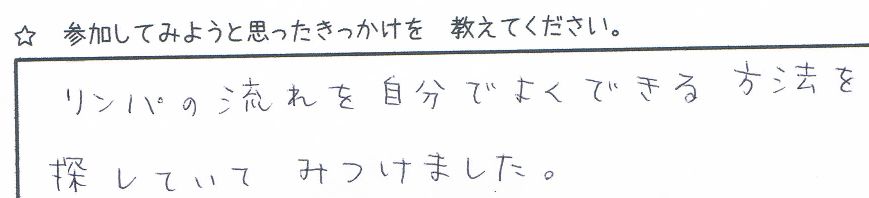 ☆ 参加してみようと思ったきっかけを 教えてください。
リンパの流れを自分でよくできる方法を
探していて みつけました。